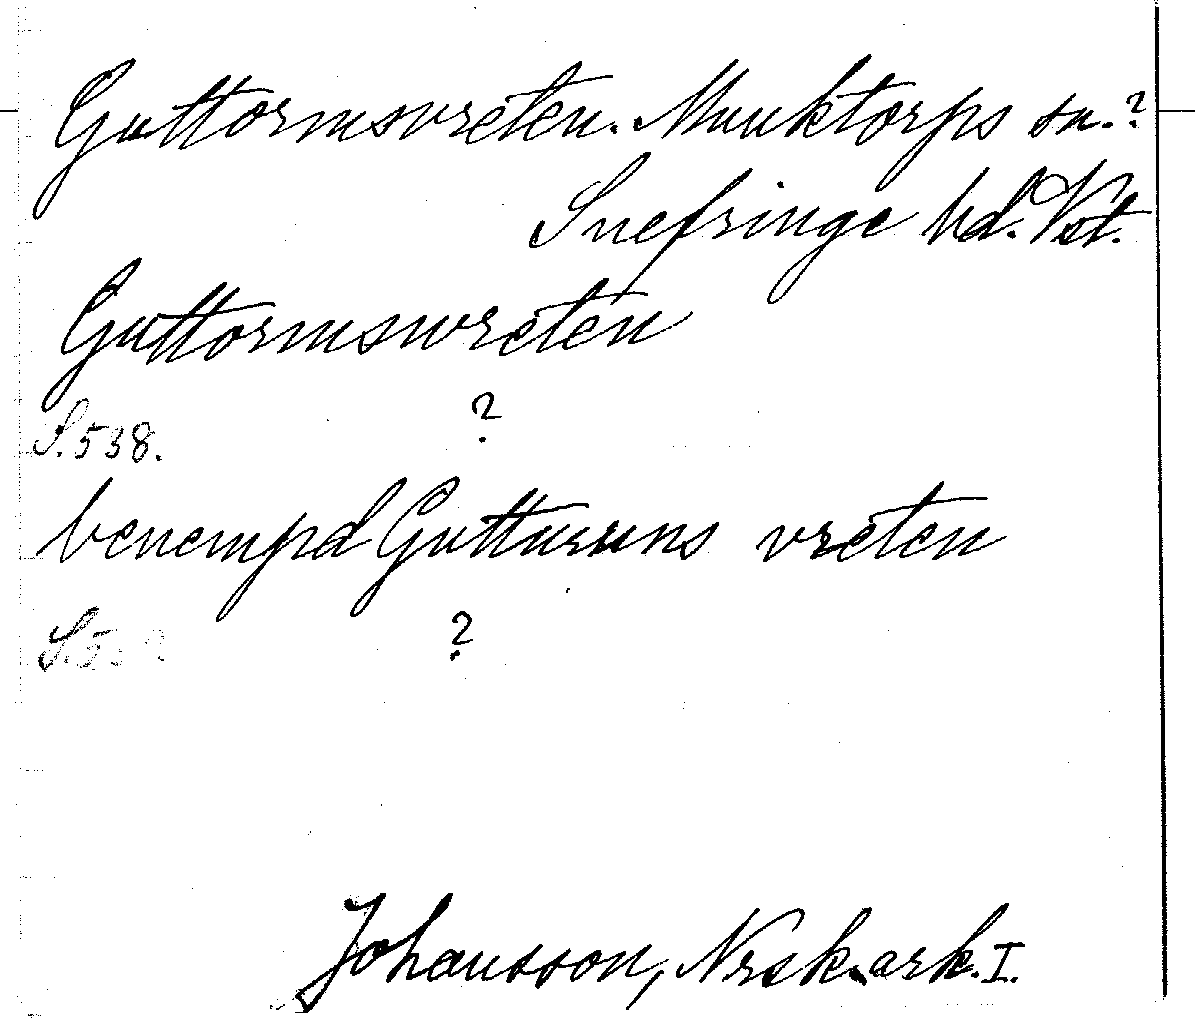 Guttormsvreten. Munktorps sn.?
Snefringe hd. Vst.
Guttormsvreten
S. 538. ?
benempd Gutturms vreten
S. ?
Johansson, Nrsk. ark. I.